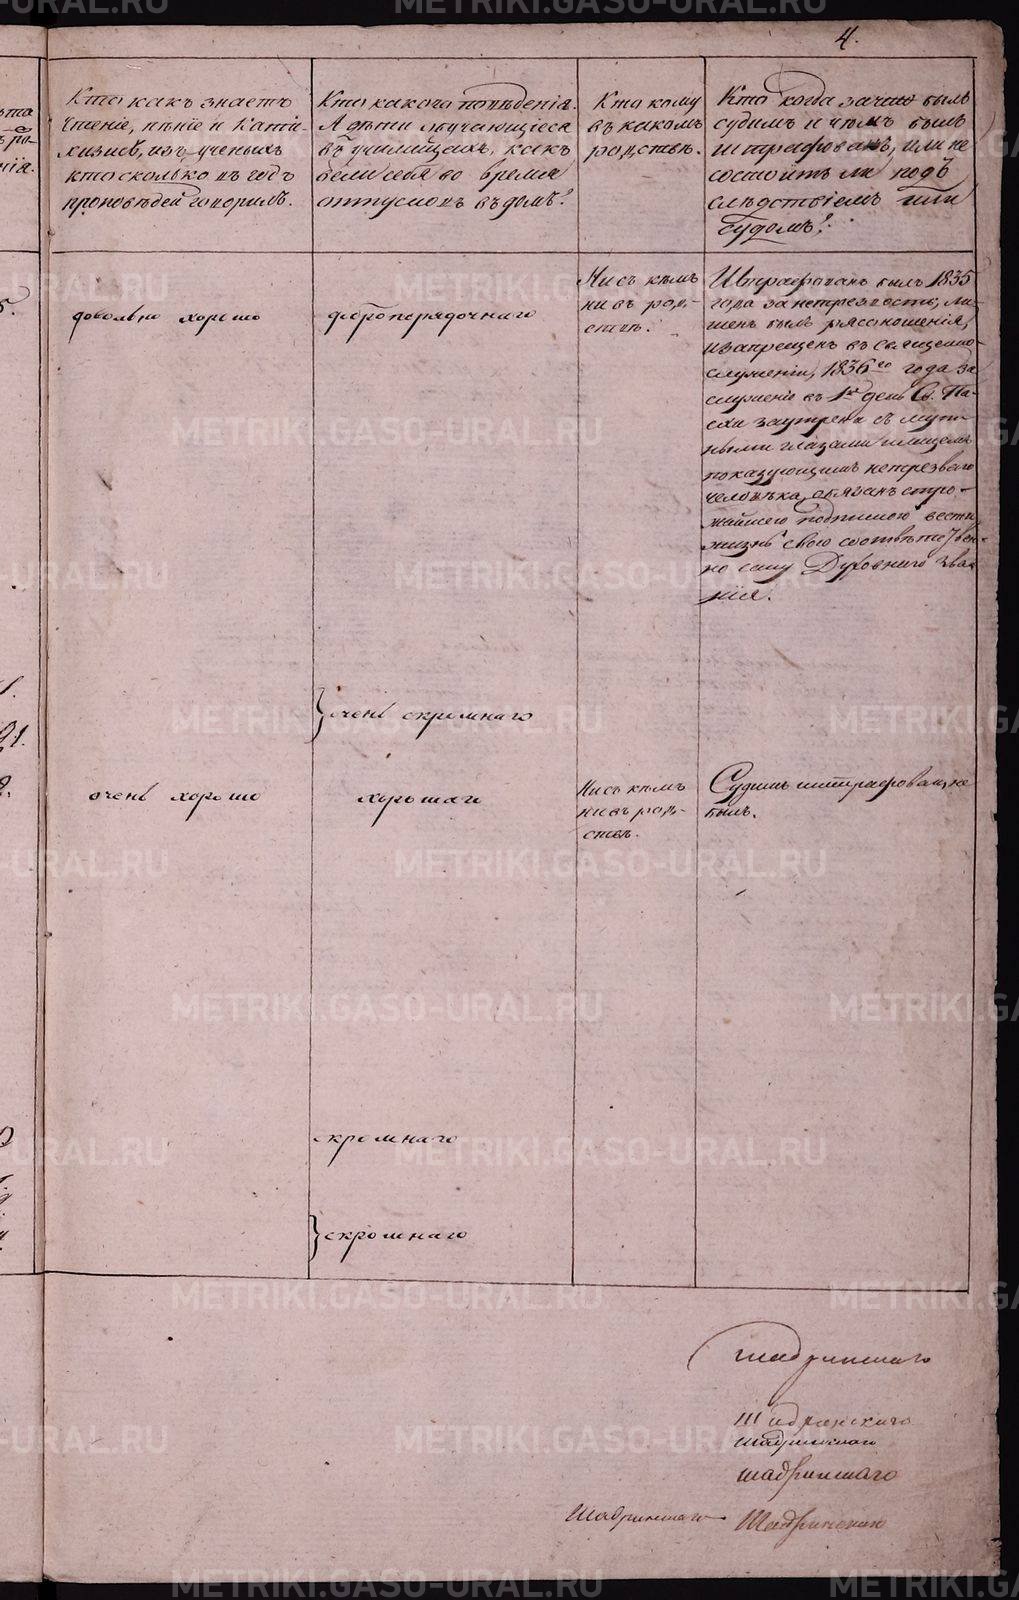 4.
Кто какъ знаетъ
чтеніе, пѣніе и Кати-
хизисъ, изъ ученыхъ
кто сколько въ годъ
проповѣдей говорилъ.
Кто какого поведенія.
А дѣти обучающіеся
въ училищахъ, какъ
вели себя во время
отпусковъ въ домъ?
Кто кому
въ какомъ
родствѣ.
Кто когда за что былъ
судимъ и чѣмъ былъ
штрафованъ, или не
состоитъ ли подъ
слѣдствіемъ или
судомъ?
довольно хорошо
добропорядочнаго
Ни съ кѣмъ
ни въ род-
ствѣ.
Штрафованъ былъ 1835
года за нетрезвость, ли-
шенъ былъ рясоношенія,
и запрещенъ въ священно-
служеніи, 1836го года за
служеніе въ 1й день Св. Па-
схи заутрени съ мут-
ными глазами и лицемъ
показующимъ нетрезваго
человѣка, обязанъ стро-
жайшею подпискою вести
жизнь свою соотвѣтствен-
но сану Духовнаго зва-
нія.
очень скромнаго
очень хорошо
хорошаго
Ни съ кѣмъ
ни въ род-
ствѣ.
Судимъ и штрафованъ не
былъ.
скромнаго
скромнаго
Шадринскаго
Шадринскаго
Шадринскаго
Шадринскаго
Шадринскаго Шадринскаго